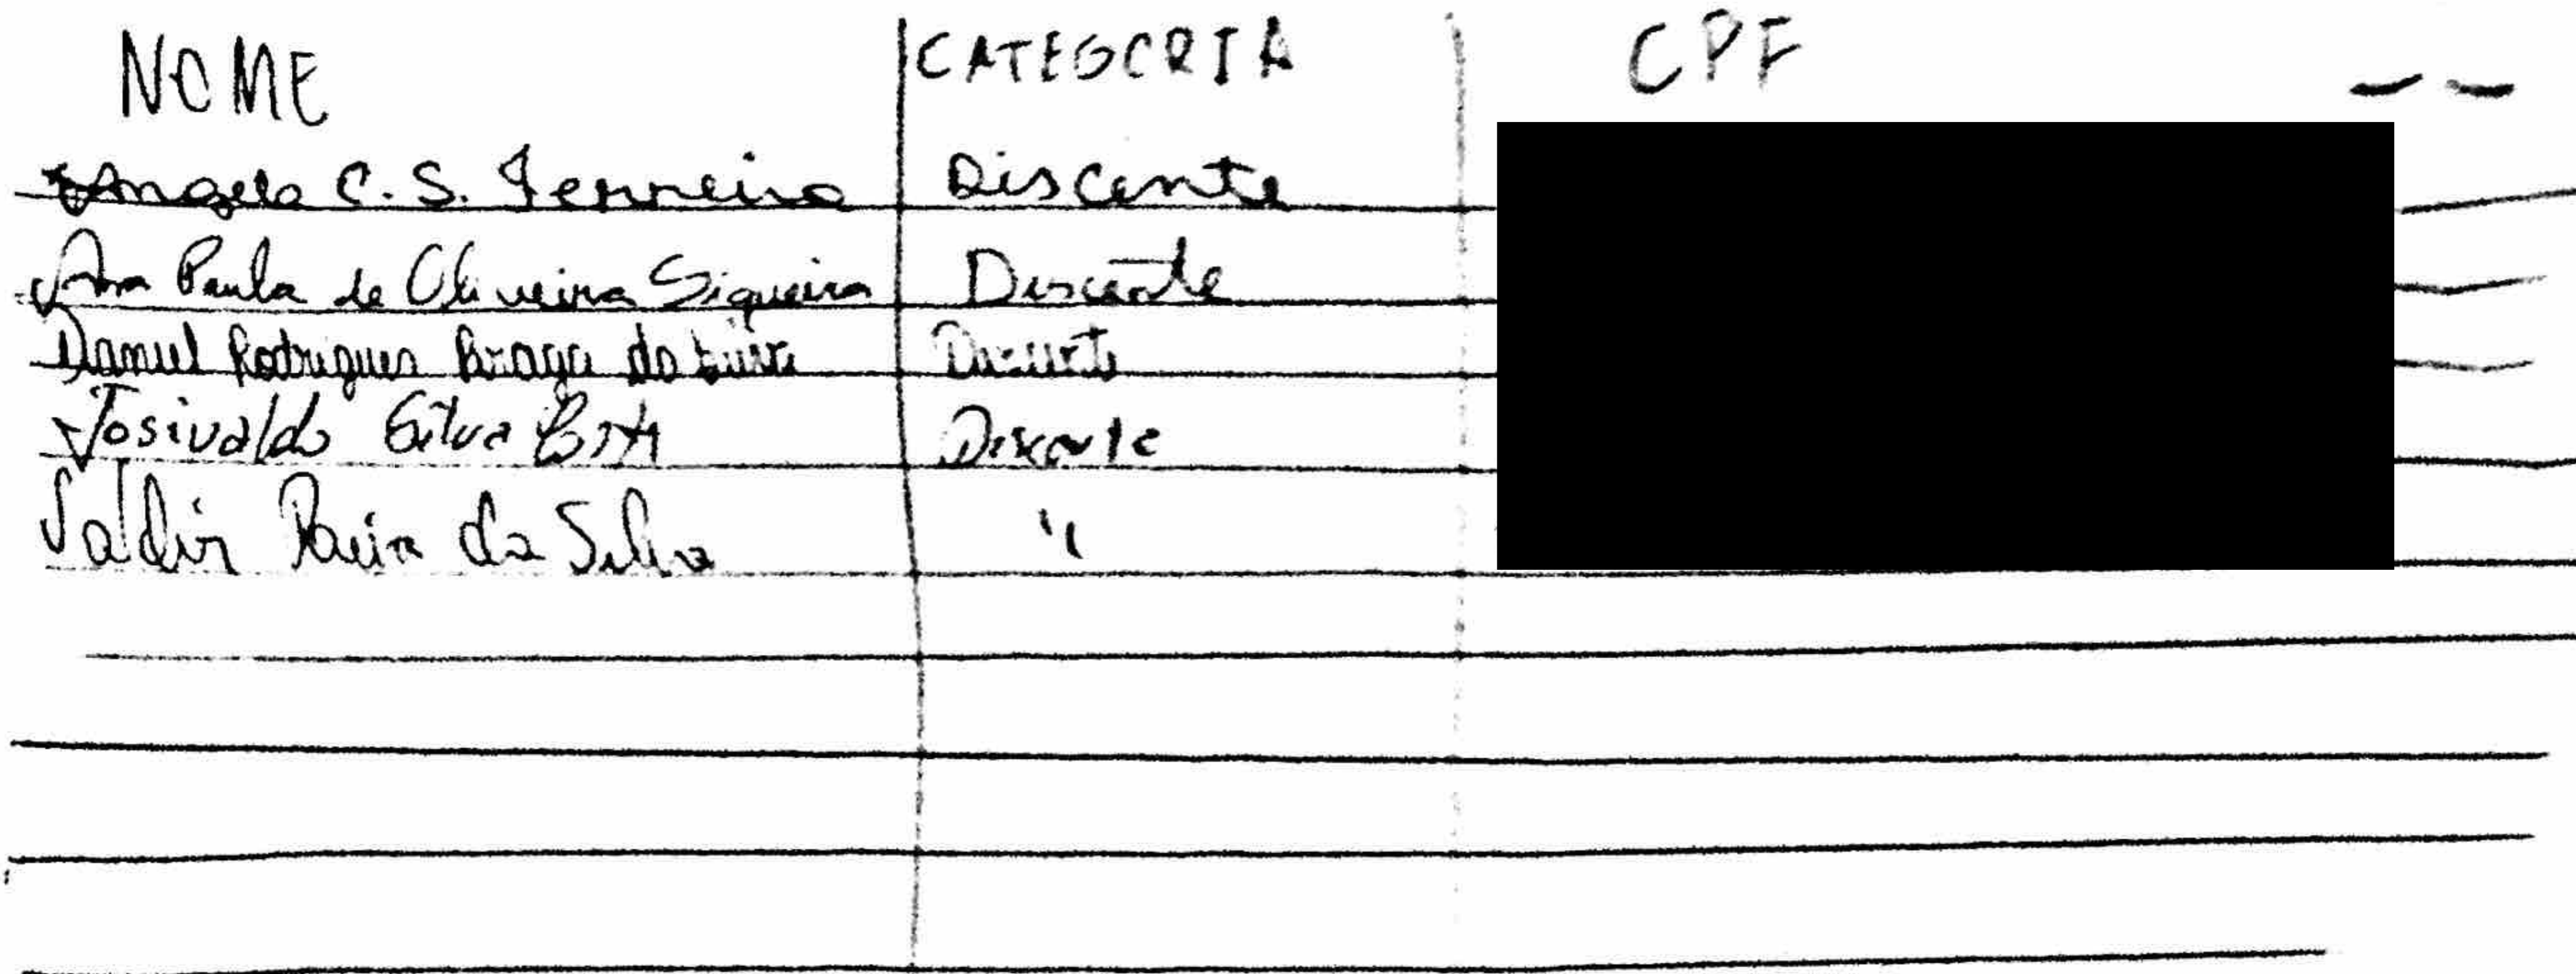 NOME CATEGORIA CPF
Angela C. S. Ferreira Discente
Ana Paula de Oliveira Siqueira Discente
Daniel Rodrigues Braga da Discente
Josivaldo Silva Discente
Valdir da Silva "